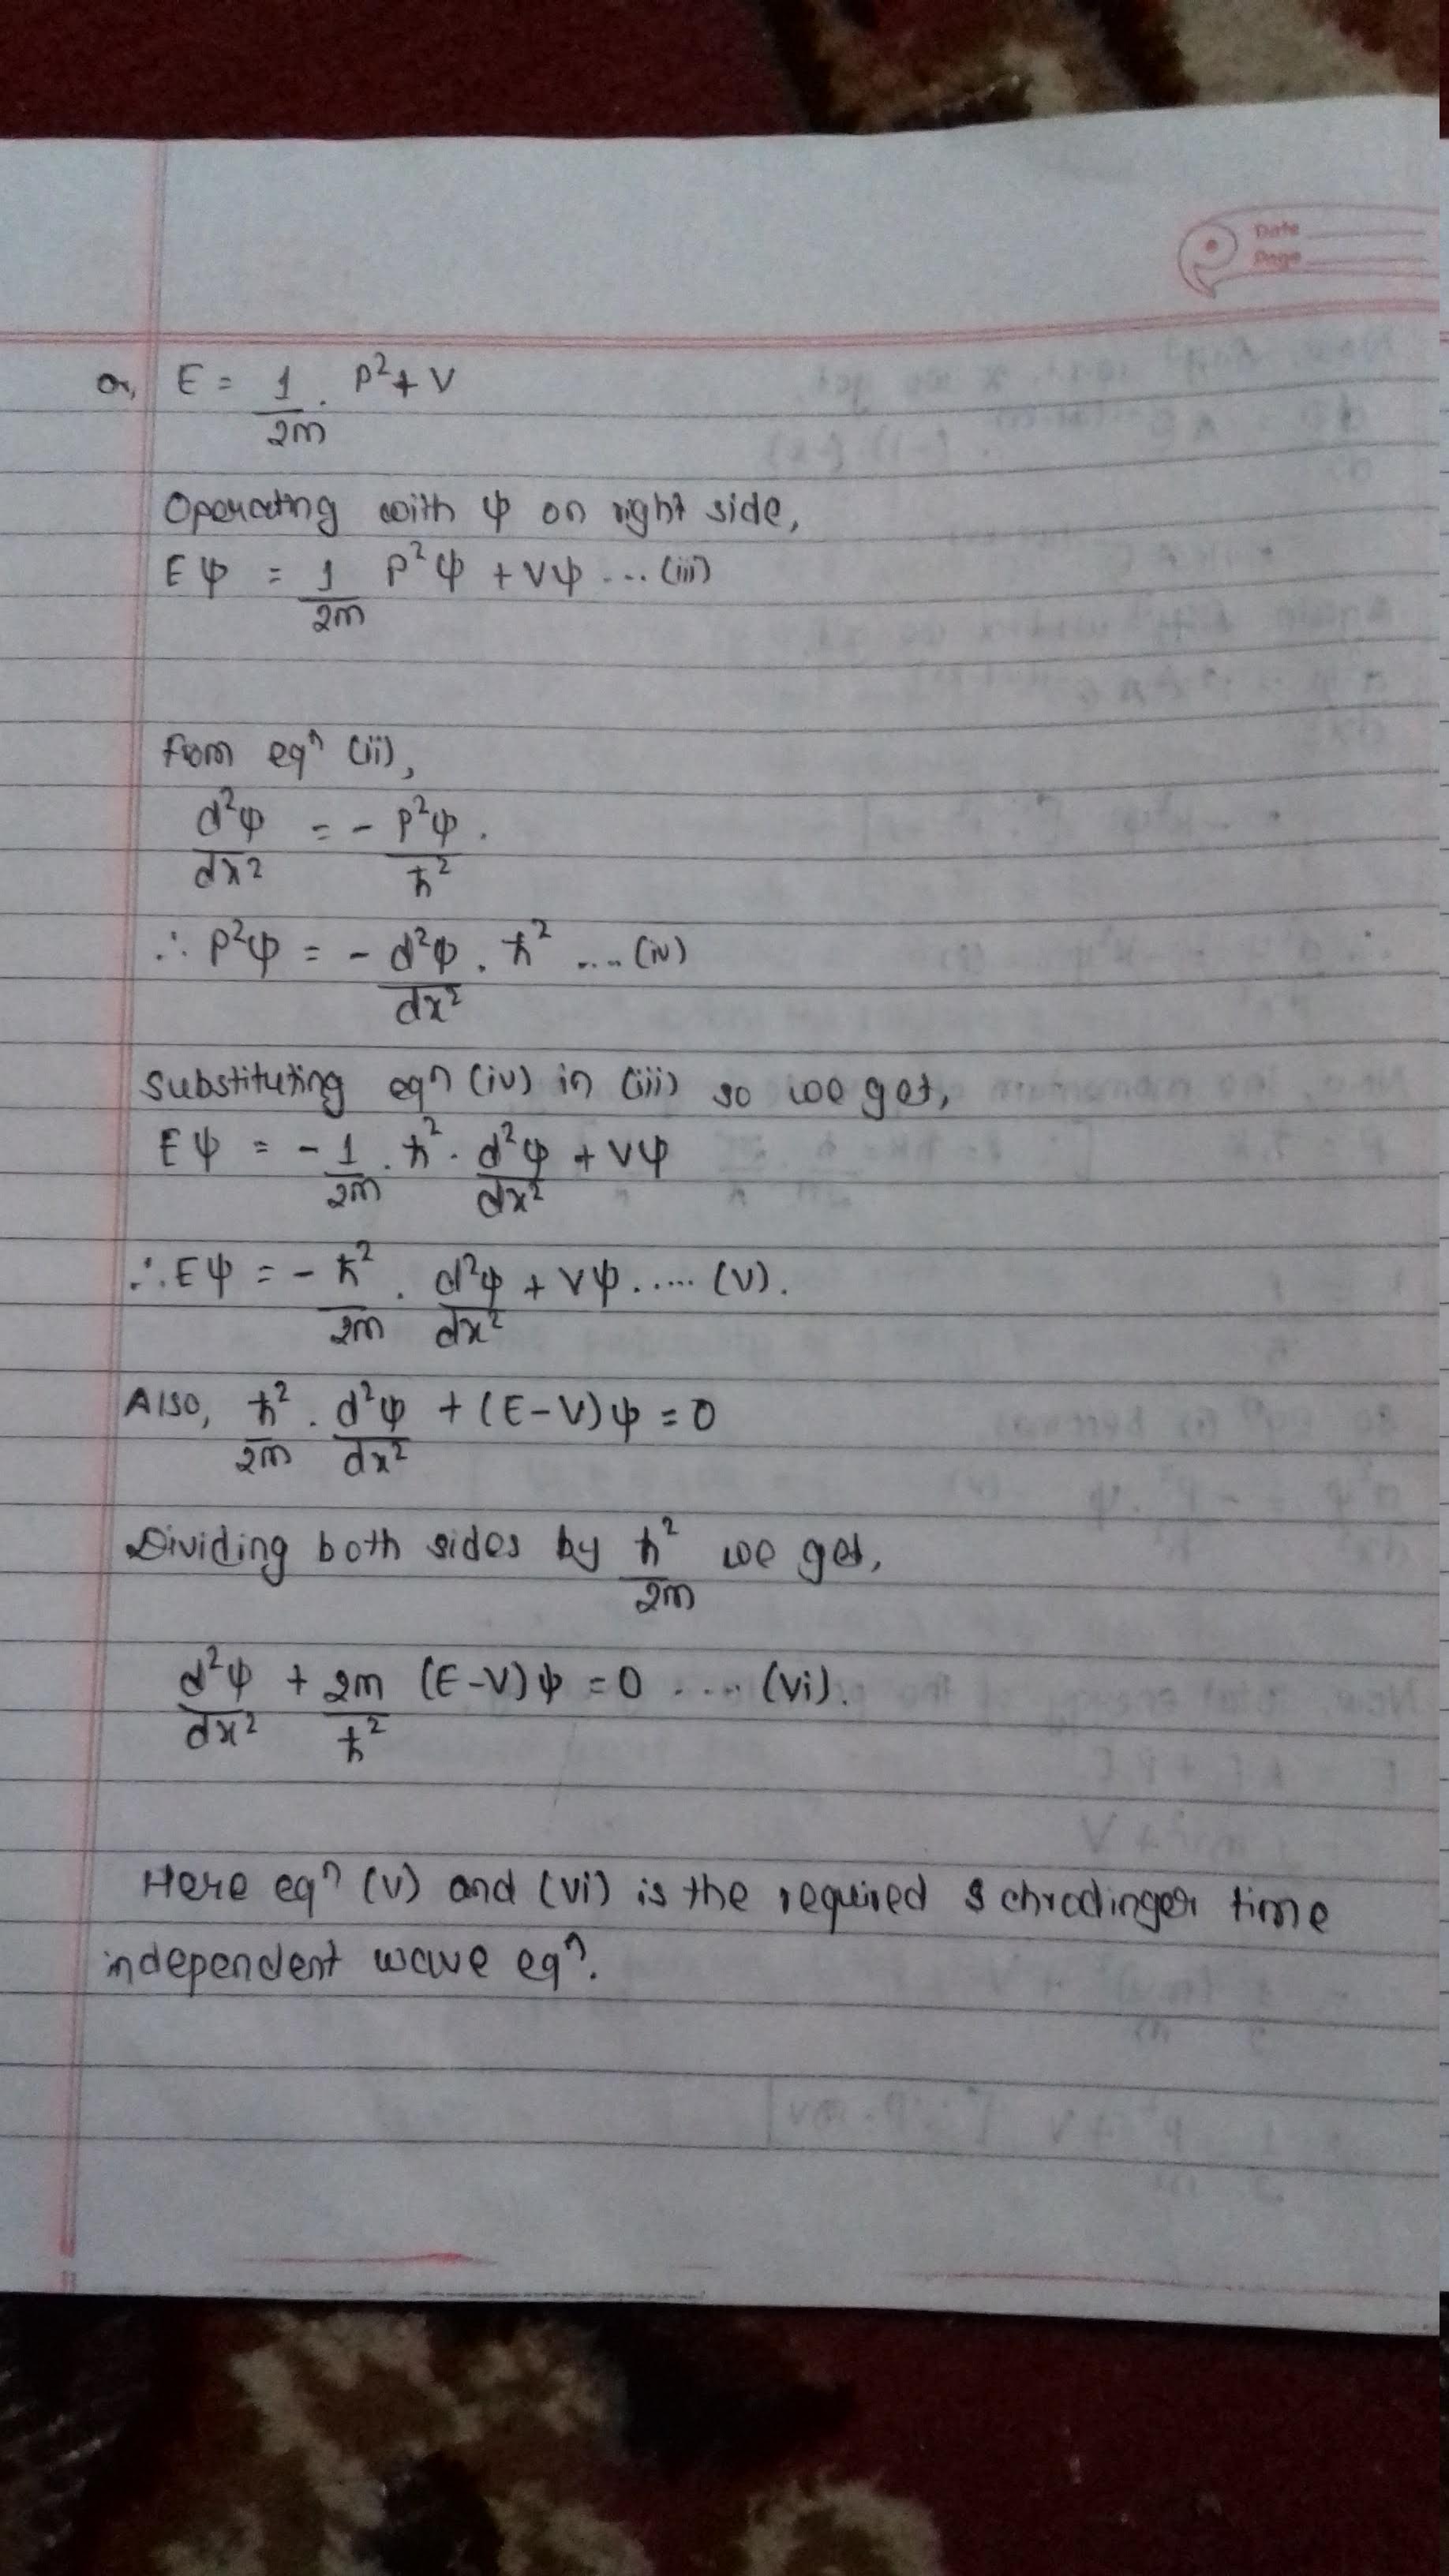 Date
Page
or, E = 1/2m . P² + V
Operating with ψ on right side,
Eψ = 1/2m P²ψ + Vψ ... (iii)
from eqⁿ (ii),
d²ψ/dx² = - P²ψ/ħ² .
∴ P²ψ = - d²ψ/dx² . ħ² .... (iv)
Substituting eqⁿ (iv) in (iii) so we get,
Eψ = - 1/2m . ħ² . d²ψ/dx² + Vψ
∴ Eψ = - ħ²/2m . d²ψ/dx² + Vψ ..... (v).
Also, ħ²/2m . d²ψ/dx² + (E-V)ψ = 0
Dividing both sides by ħ²/2m we get,
d²ψ/dx² + 2m/ħ² (E-V)ψ = 0 .... (vi).
Here eqⁿ (v) and (vi) is the required Schrodinger time
independent wave eqⁿ.